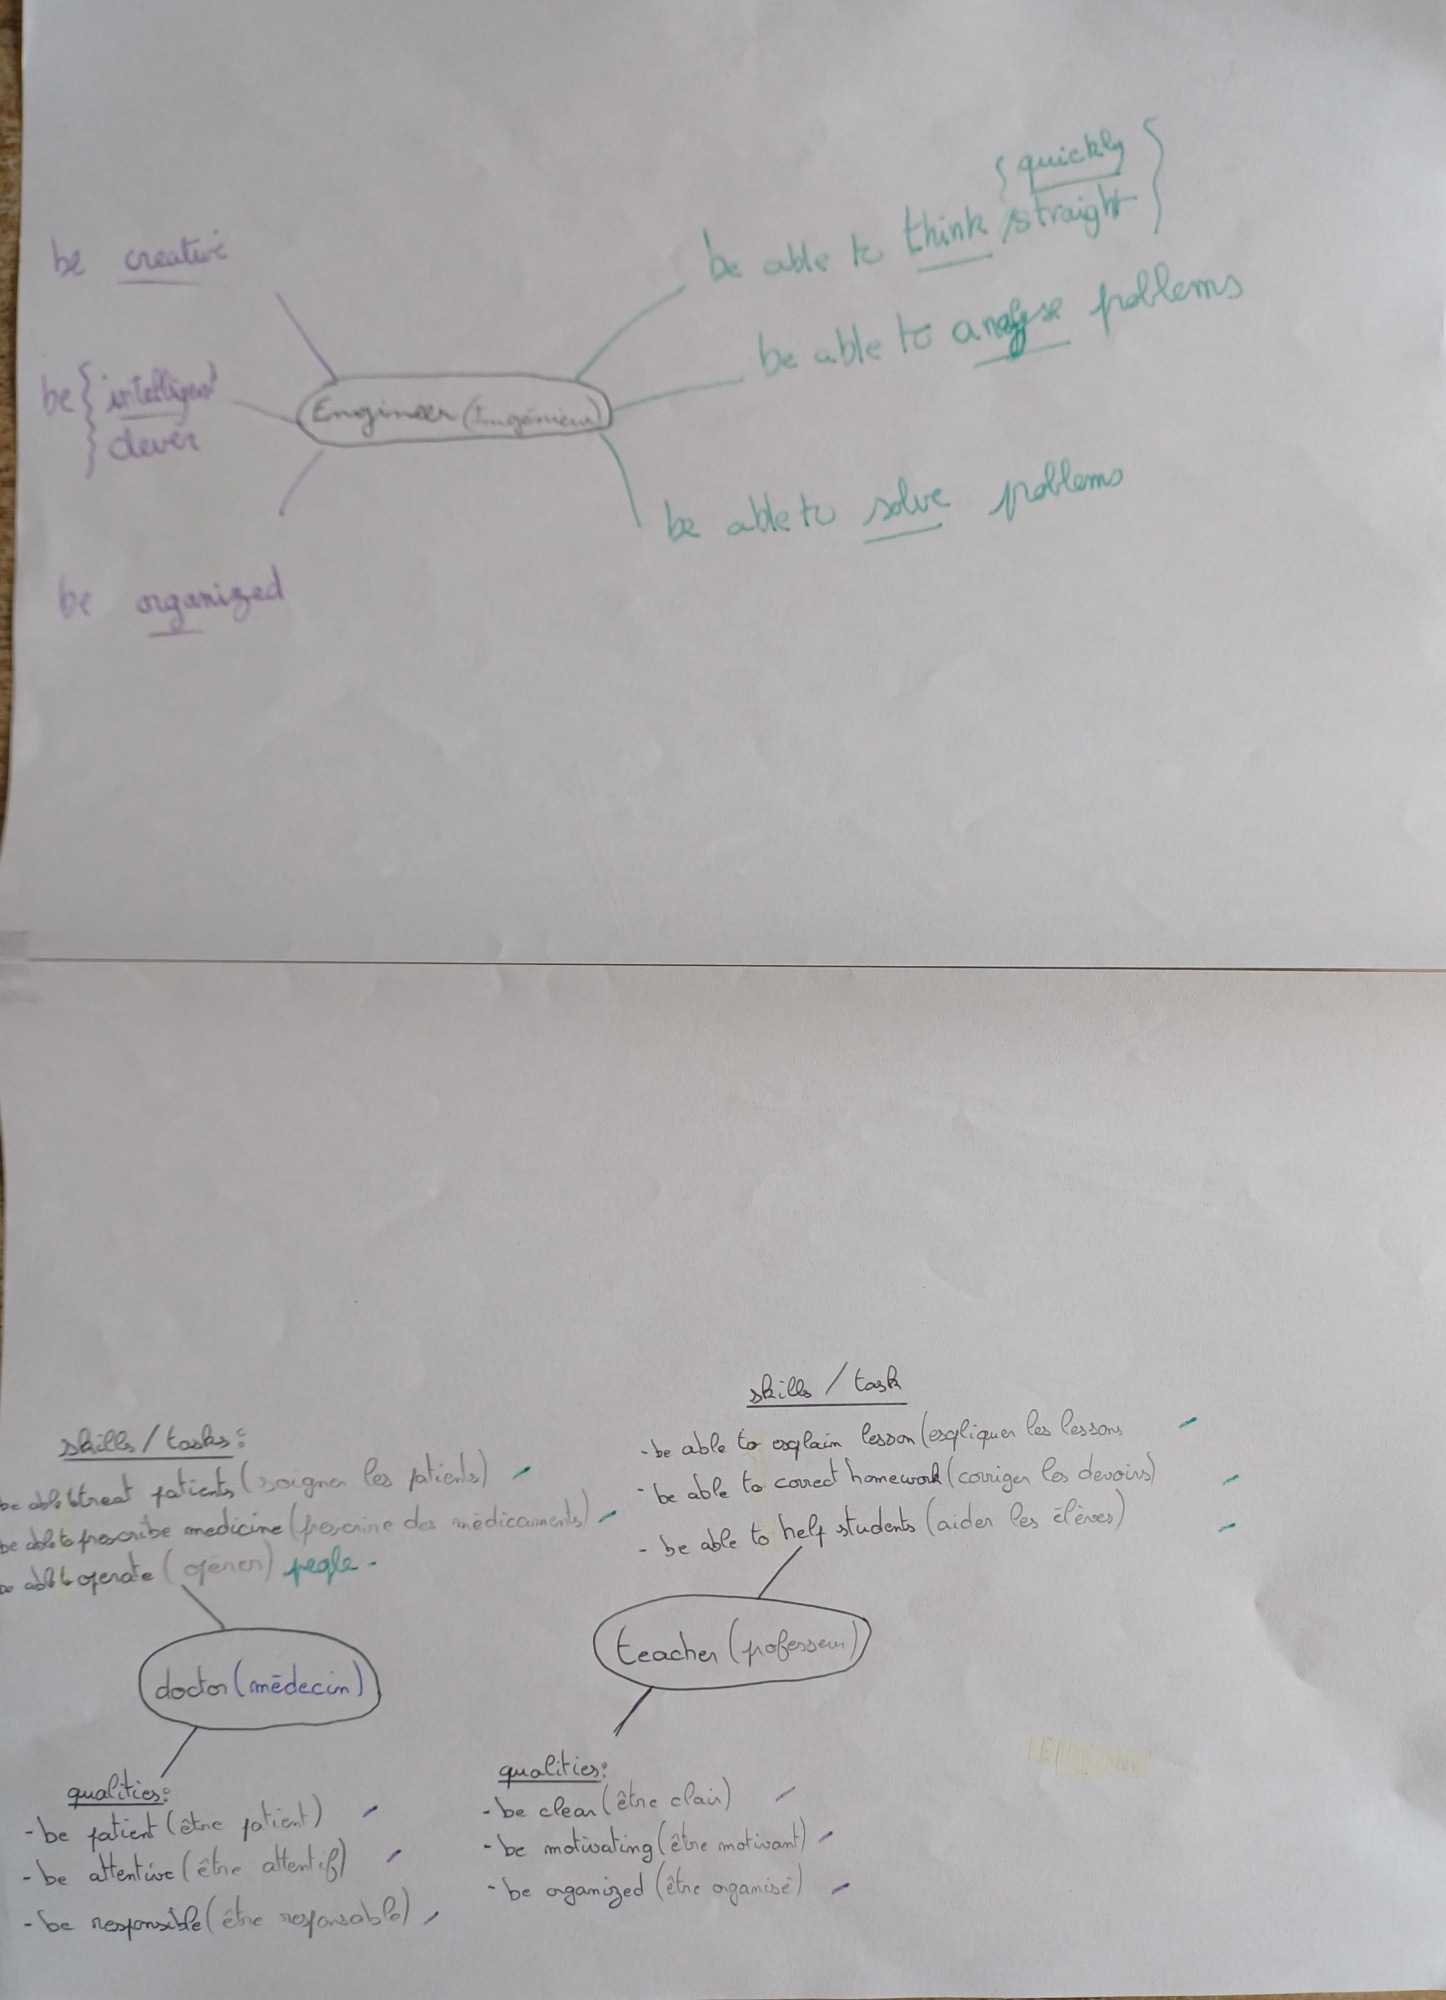 quickly
be able to think / straight
be creative
be able to analyse problems
be intelligent
clever
Engineer (Ingénieur)
be able to solve problems
be organized
skills / task
- be able to explain lesson (expliquer les lessons
- be able to correct homework (corriger les devoirs)
- be able to help students (aider les élèves)
teacher (professeur)
qualities:
- be clear (être clair)
- be motivating (être motivant)
- be organized (être organisé)
skills / tasks:
be able to treat patients (soigner les patients)
be able to prescribe medicine (prescrire des médicaments)
be able to operate (opérer) people
doctor (médecin)
qualities:
- be patient (être patient)
- be attentive (être attentif)
- be responsible (être responsable)